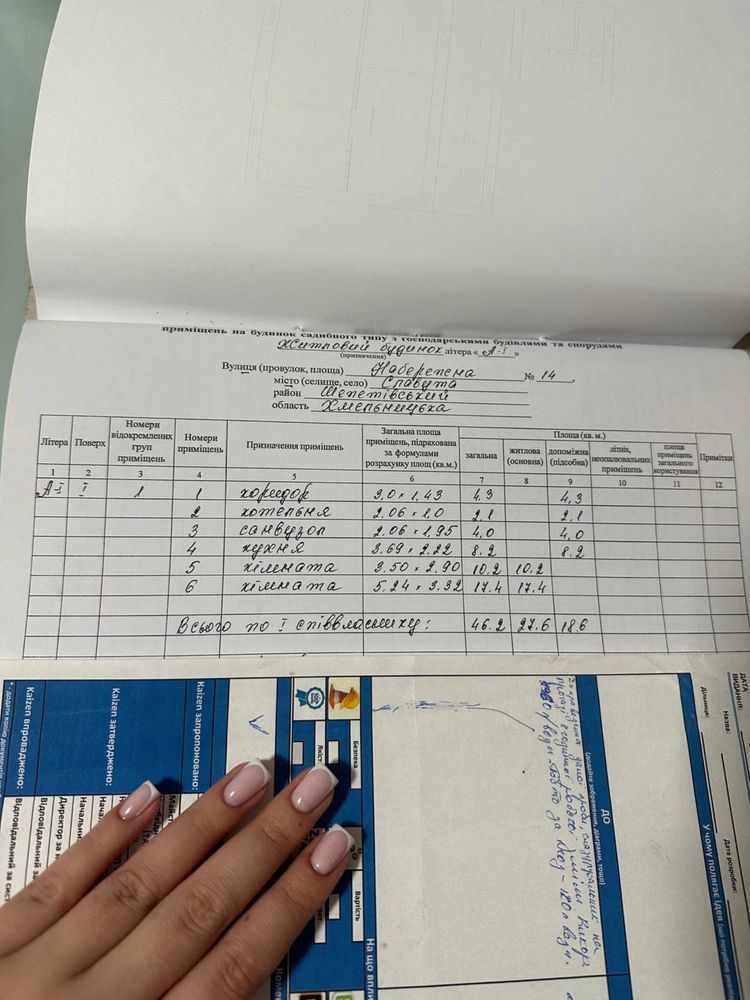 приміщень на будинок садибного типу з господарськими будівлями та спорудами
Житловий будинок літера « А-І »
(призначення)
Вулиця (провулок, площа) Набережна № 14,
місто (селище, село) Славута
район Шепетівський
область Хмельницька
Літера Поверх Номери відокремлених груп приміщень Номери приміщень Призначення приміщень Загальна площа приміщень, підрахована за формулами розрахунку площ (кв.м.) Площа (кв. м.) загальна житлова (основна) допоміжна (підсобна) літніх, неопалювальних приміщень площа приміщень загального користування Примітки
1 2 3 4 5 6 7 8 9 10 11 12
А-І І 1 1 коридор 3,0 × 1,43 4,3 4,3
2 котельня 2.06 × 1,0 2,1 2,1
3 санвузол 2.06 × 1,95 4,0 4,0
4 кухня 3.69 × 2.22 8.2 8.2
5 кімната 3.50 × 2.90 10.2 10.2
6 кімната 5.24 × 3.32 17.4 17.4
Всього по І співвласнику: 46.2 27.6 18.6
ДАТА ВИДАННЯ:
Назва:
Дата розробки:
Дільниця:
У чому полягає ідея
ДО
(додайте зображення, діаграми, тощо)
Безпека
Якість
Вартість
На що
Kaizen запропоновано:
Kaizen затверджено:
Kaizen впроваджено:
Директор за
Відповідальний за